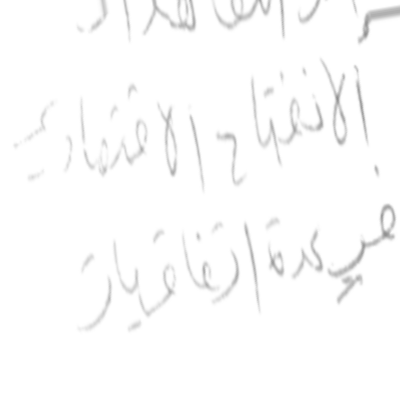 الانفتاح الاقتصادي
في عدة اتفاقيات